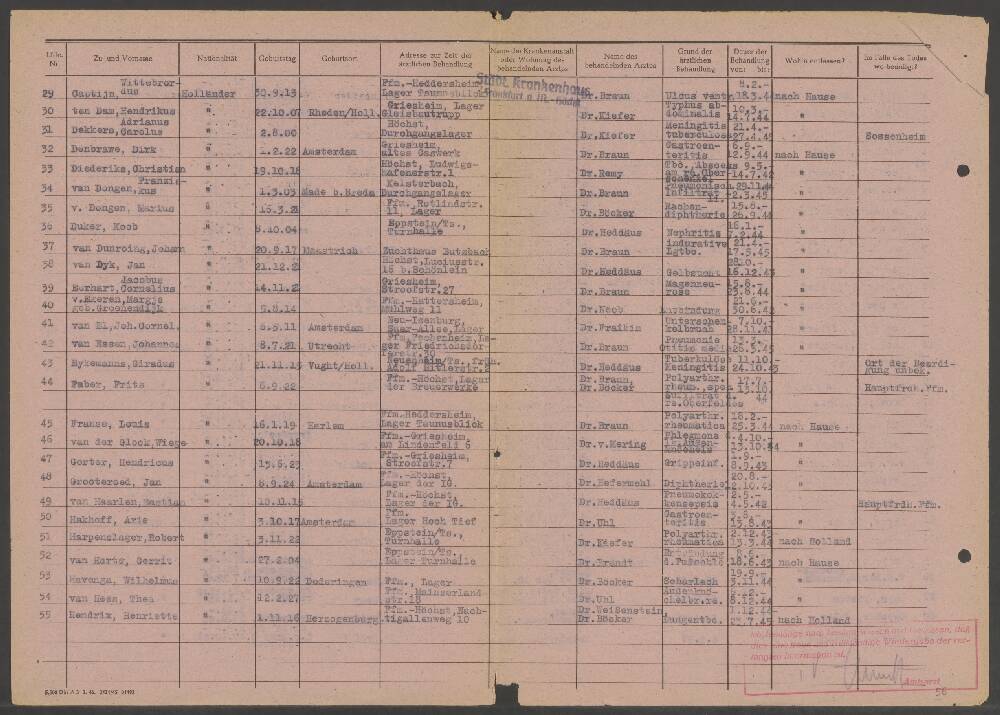 Lfde. Nr. Zu- und Vorname Nationalität Geburtstag Geburtsort Adresse zur Zeit der ärztlichen Behandlung Name der Krankenanstalt oder Wohnung des behandelnden Arztes Name des behandelnden Arztes Grund der ärztlichen Behandlung Dauer der Behandlung von: bis: Wohin entlassen? Im Falle des Todes wo beerdigt?
Städt. Krankenhaus
Frankfurt a. M.-Höchst
29 Captijn, Wittebrordus Holländer 30.9.13 Ffm.-Heddersheim, Lager Taunusblick Dr.Braun Ulcus ventr. 8.2.- 18.3.44 nach Hause
30 ten Dam, Hendrikus " 22.10.07 Rheden/Holl. Griesheim, Lager Gleisbautrupp Dr.Kiefer Typhus abdominalis 10.3.- 14.7.44 "
31 Dekkers, Adrianus Carolus " 2.8.00 Höchst, Durchgangslager Dr.Kiefer Meningitis tuberculosa 21.4.- 27.4.45 Sossenheim
32 Denbrawe, Dirk " 1.2.22 Amsterdam Griesheim, altes Gaswerk Dr.Braun Gastroenteritis 6.9.- 12.9.44 nach Hause
33 Diederiks, Christian " 19.10.18 Höchst, Ludwigshafenerstr.1 Dr.Remy Tbc. Abscess am re.Oberschenkel 9.5.- 14.7.42 "
34 van Dongen, Franziskus " 1.3.03 Made b.Breda Kelsterbach, Durchgangslager Dr.Braun Pneumonisch. infiltrat 29.11.44 - 2.3.45 "
35 v. Dongen, Marius " 16.3.21 Ffm. Rotlindstr. 11, Lager Dr.Böcker Rachendiphtherie 15.8.- 26.9.44 "
36 Duker, Koob " 8.10.04 Eppstein/Ts., Turnhalle Dr.Heddäus Nephritis 16.1.- 7.2.44 "
37 van Dunroing, Johann " 20.9.17 Maastrich Zuchthaus Butzbach Dr.Braun indurative Lgtbc. 21.4.- 17.3.45 "
38 van Dyk, Jan " 21.12.2 Höchst, Luciusstr. 16 b.Schönlein Dr.Heddäus Gelbsucht 16.12.43 "
39 Eurhart, Jacobus Cornelius " 14.11.2 Griesheim, Stroofstr.27 Dr.Braun Magenneurose 15.8.- 23.8.44 "
40 v.Ekeren, Margje geb.Groehendijk " 9.8.14 Ffm.-Hattersheim, Mühlweg 11 Dr.Koob Entbindung 21.6.- 30.6.42 "
41 van El, Joh.Cornel. " 6.9.11 Amsterdam Neu-Isenburg, Saar-Allee, Lager Dr.Fraikin Unterschenkelbruch 7.10.- 28.11.43 "
42 van Essen, Johannes " 8.7.21 Utrecht Ffm. Fechenheim, Lager Friedrichsdorferstr.30 Dr.Braun Pneumonie Otitis media 13.3.- 26.5.43 "
43 Eykemanns, Giradus " 21.11.15 Vught/Holl. Neuenhain/Ts., früh. Adolf Hitlerstr.2 Dr.Heddäus Tuberkulöse Meningitis 11.10.- 24.10.43 Ort der Beerdigung unbek.
44 Faber, Frits " 6.9.22 Ffm.-Höchst, Lager der Breuerwerke Dr.Braun, Dr.Böcker Polyarthr. rheum., spez. Infiltrat d. re.Oberfeldes 17.7.- 13.10. 44 Hauptfrdh.Ffm.
45 Franse, Louis " 16.1.19 Harlem Ffm.Heddersheim, Lager Taunusblick Dr.Braun Polyarthr. rheumatica 18.2.- 25.3.44 nach Hause
46 van der Glock, Wiege " 20.10.18 Ffm.-Griesheim, am Lindenfeld 6 Dr.v.Mering Phlegmone 4.10.- 13.10.44 "
47 Gorter, Hendricus " 15.6.23 Ffm.-Griesheim, Stroofstr.7 Dr.Heddäus Grippeinf. 1.9.- 8.9.43 "
48 Grooteroed, Jan " 8.9.24 Amsterdam Ffm.-Höchst, Lager der IG. Dr.Hefermehl Diphtherie 20.8.- 12.10.43 "
49 van Haarlen, Bastian " 10.11.15 Ffm.-Höchst, Lager der IG. Dr.Heddäus Pneumokokkensepsis 2.5.- 4.5.42 Hauptfrdh.Ffm.
50 Hakhoff, Arie " 3.10.17 Amsterdam Ffm. Lager Hoch Tief Dr.Uhl Gastroenteritis 3.8.- 13.8.43 "
51 Harpenslager, Robert " 3.11.22 Eppstein/Ts., Turnhalle Dr.Kiefer Polyarthr. rheumatica 2.12.43 13.3.44 nach Holland
52 van Harte, Gerrit " 27.2.04 Eppstein/Ts. Lager Turnhalle Dr.Brandt Entzündung d.Fußsohle 8.6.- 18.6.43 nach Hause
53 Havenga, Wilhelmus " 10.9.22 Dodaringen Ffm., Lager Dr.Böcker Scharlach 19.9.- 3.11.44 "
54 van Hess, Thea " 12.2.27 Ffm. Mainzerlandstr.18 Dr.Uhl Außenknöchelbr.re. 5.12.- 8.12.44 "
55 Hendrix, Henriette " 1.11.16 Herzogenburg Ffm.-Höchst, Nachtigallenweg 10 Dr.Weißenstein, Dr.Böcker Lungentbc. 7.12.44- 23.7.45 nach Holland
Amtsarzt
56